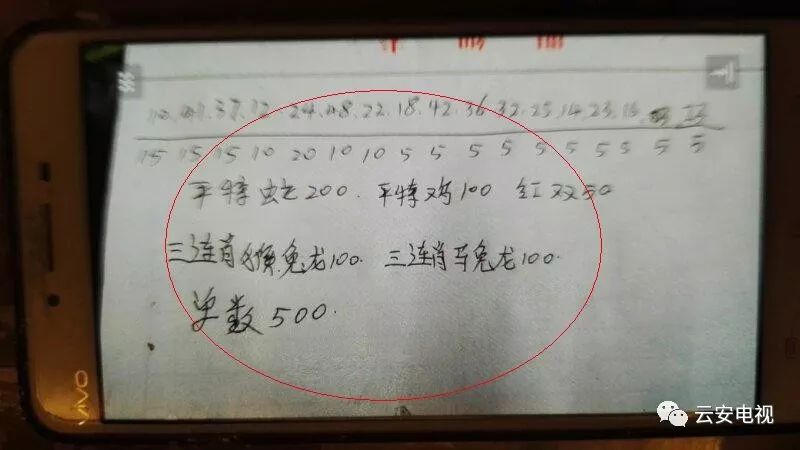 37.12.24.48.22.18.42.36.32.25.14.23.
15 15 15 10 20 10 10 5 5 5 5 5 5 5 5 5 5
平特蛇200. 平特鸡100 红双50
三连肖猴兔龙100. 三连肖马兔龙100.
单数500.
vivo
云安电视